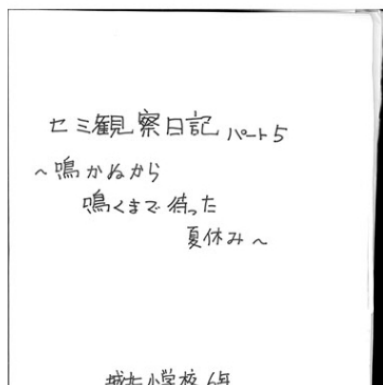 セミ観察日記 パート5
~鳴かぬから
鳴くまで待った
夏休み~
城井小学校 6年